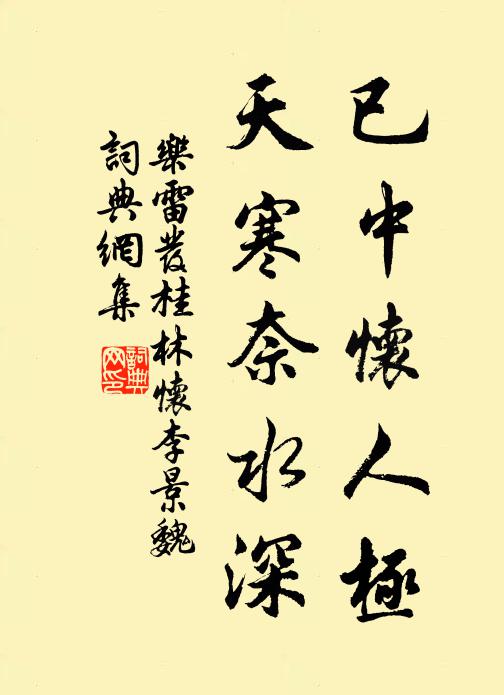 已中懷人極
天寒奈水深
樂雷發桂林懷李景魏
詞典網集
詞典網印